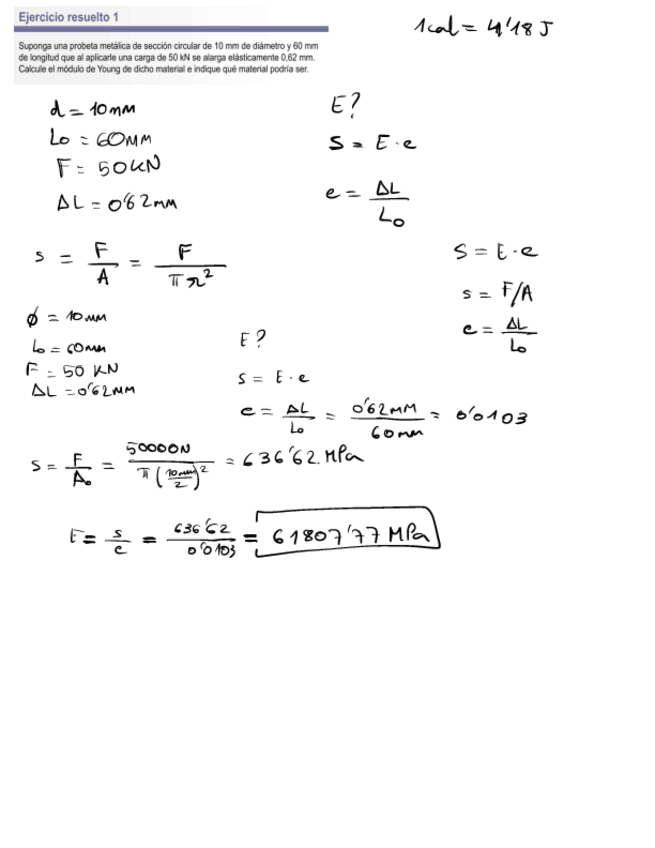 Ejercicio resuelto 1
1cal = 4'18 J
Suponga una probeta metálica de sección circular de 10 mm de diámetro y 60 mm
de longitud que al aplicarle una carga de 50 kN se alarga elásticamente 0,62 mm.
Calcule el módulo de Young de dicho material e indique qué material podría ser.
d = 10mm
Lo = 60mm
F = 50kN
ΔL = 0'62mm
E?
S = E · e
e = ΔL / Lo
s = F / A = F / π r²
S = E · e
s = F/A
e = ΔL / Lo
ϕ = 10mm
Lo = 60mm
F = 50 KN
ΔL = 0'62mm
E?
S = E · e
e = ΔL / Lo = 0'62mm / 60mm = 0'0103
S = F / Ao = 50000N / π (10mm / 2)² = 636'62 MPa
E = s / e = 636'62 / 0'0103 = 61807'77 MPa